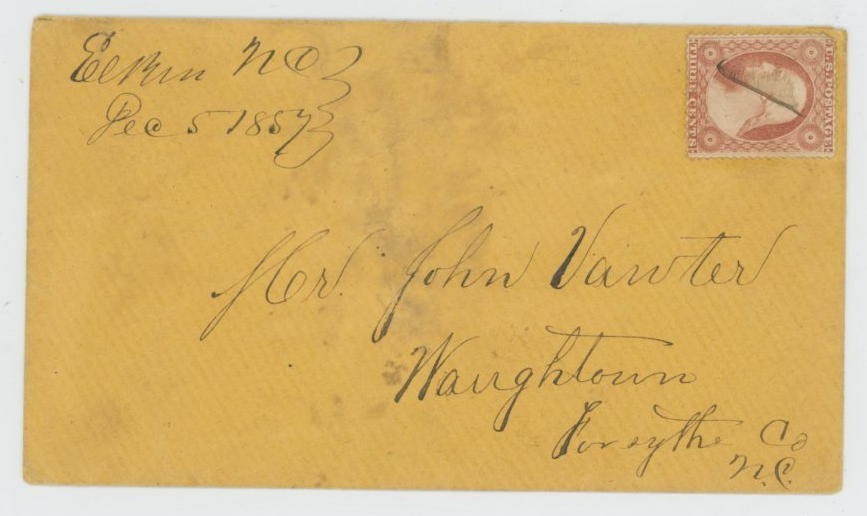 Elkin NC
Dec 5 1857
U.S. POSTAGE
THREE CENTS
Mr. John Vawter
Waughtown
Forsythe Co
N.C.